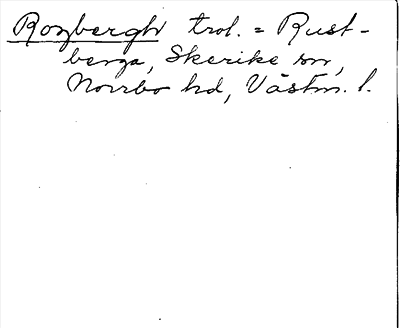 Rozbergh trol. = Rust-
berga, Skerike sn,
Norrbo hd, Västm. l.